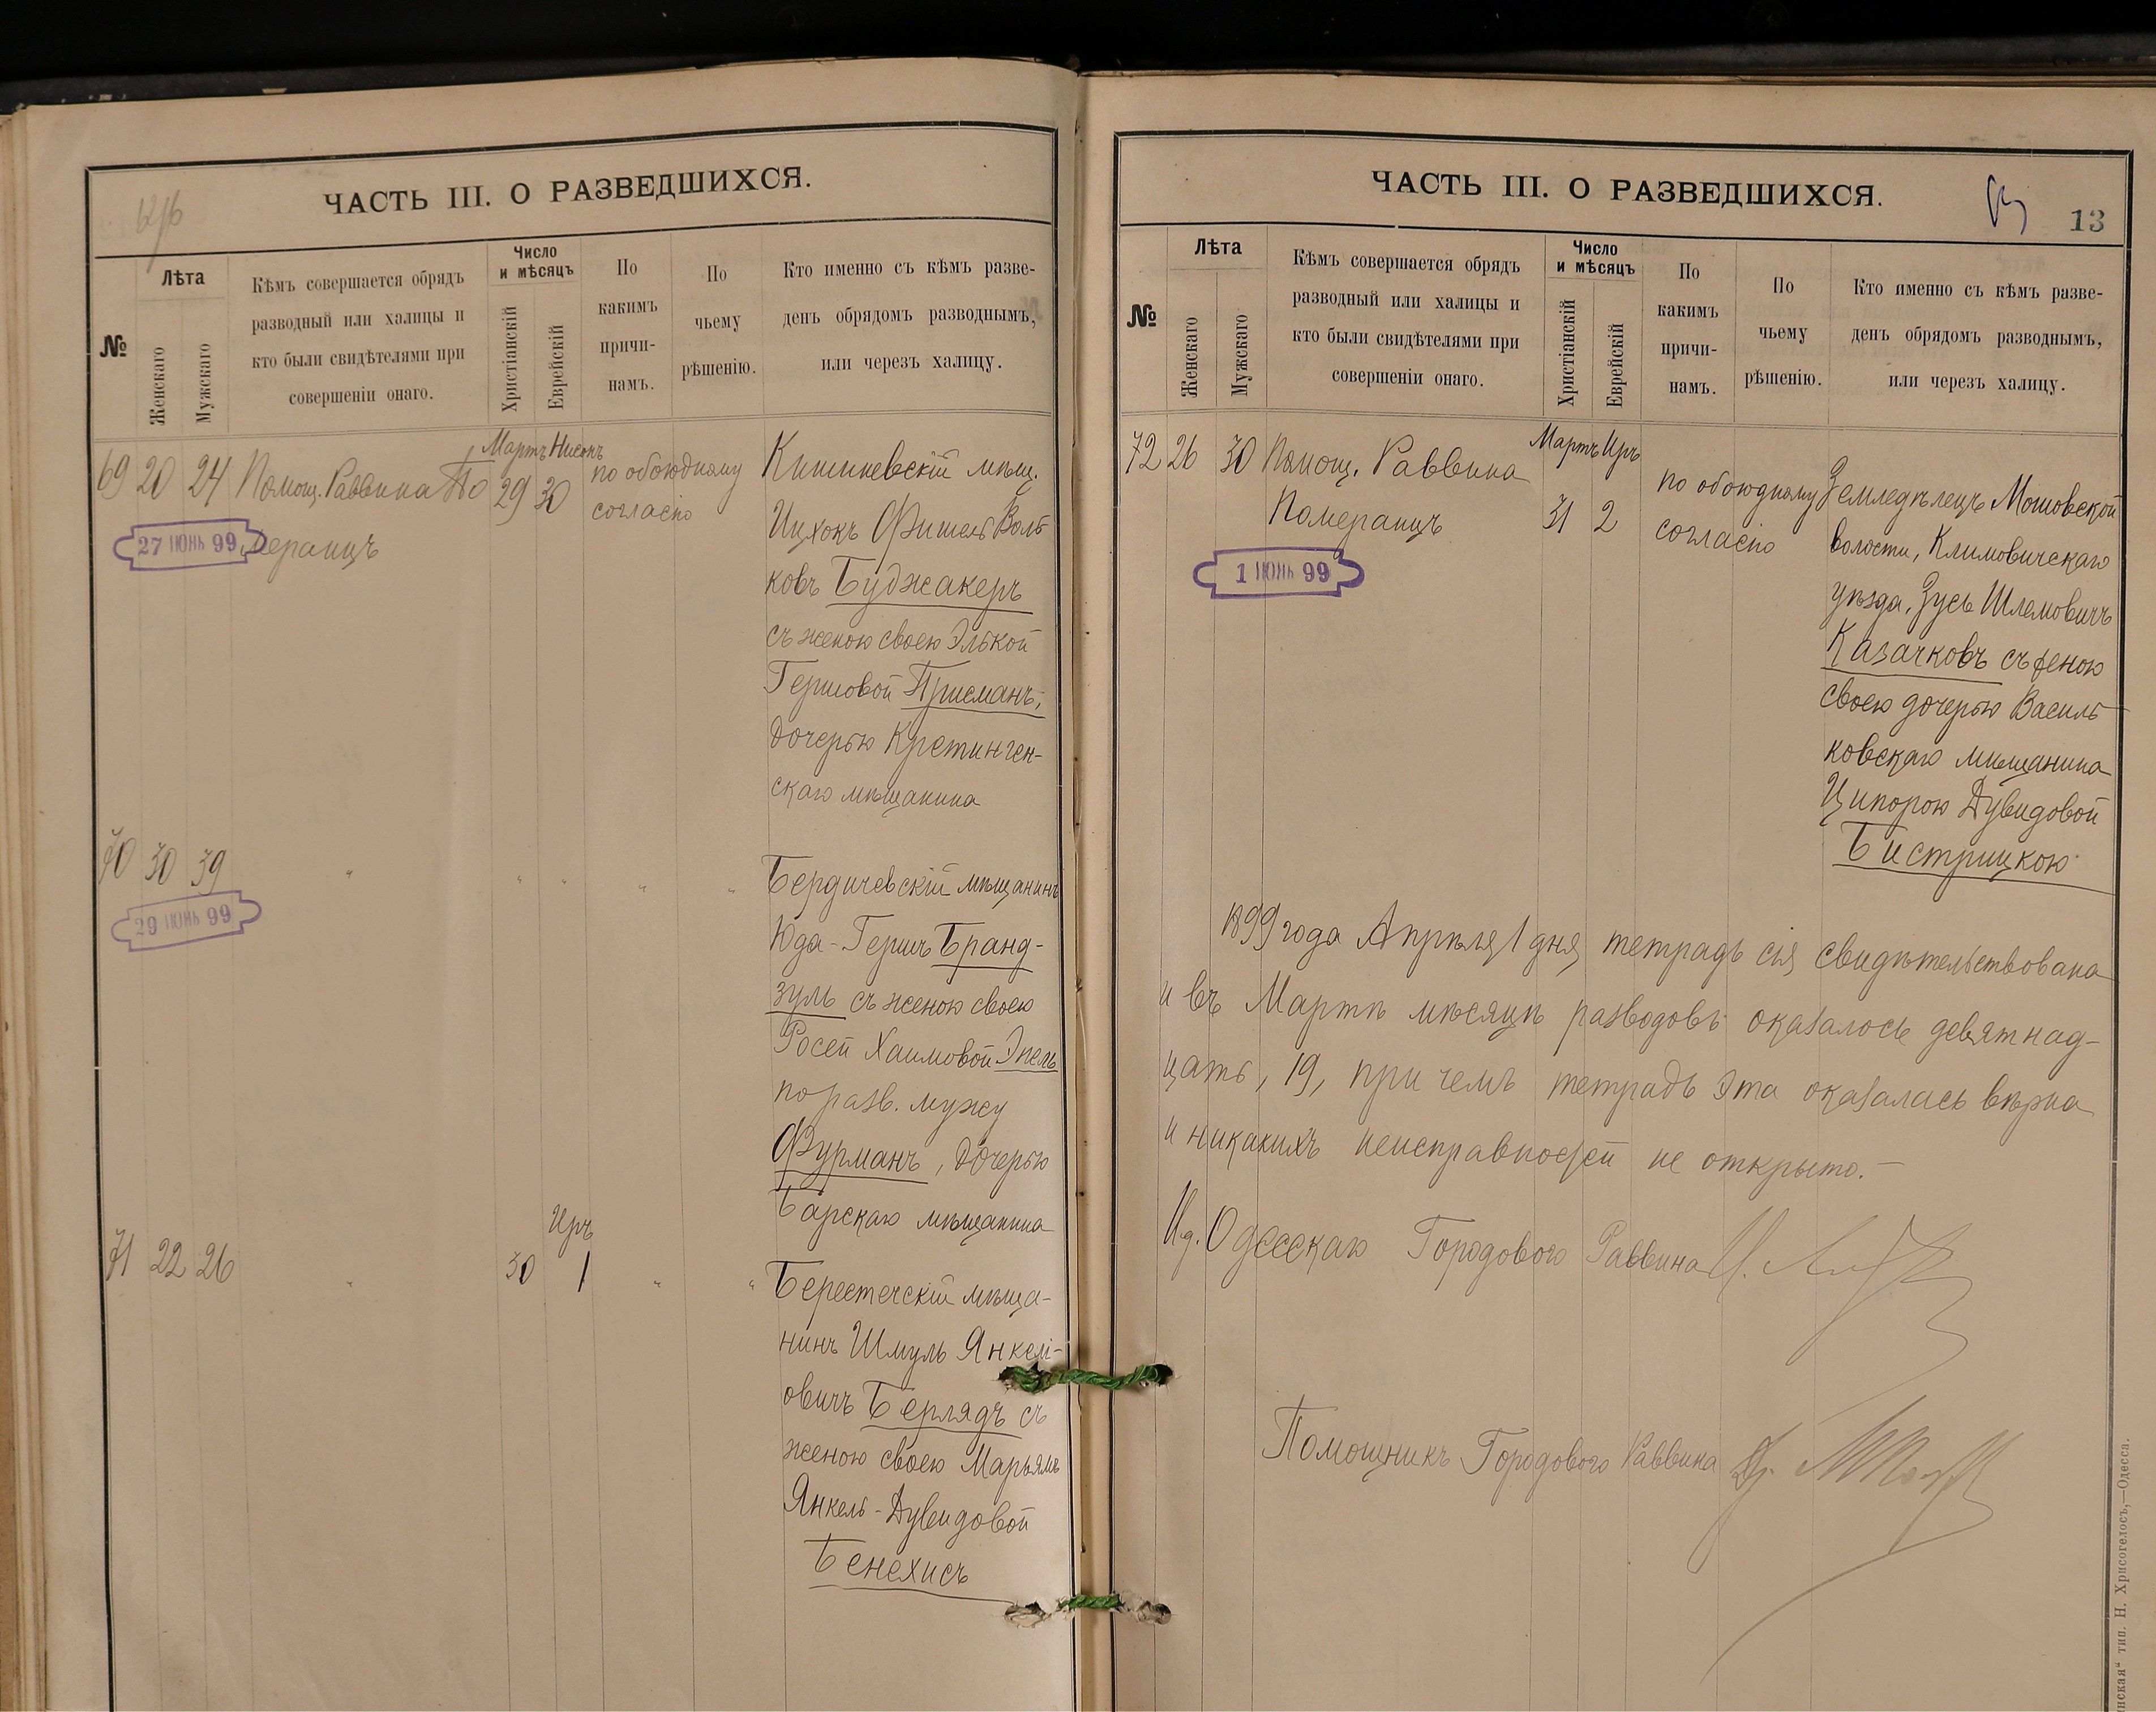 ЧАСТЬ III. О РАЗВЕДШИХСЯ.
№
Лѣта
Женскаго
Мужскаго
Кѣмъ совершается обрядъ
разводный или халицы и
кто были свидѣтелями при
совершеніи онаго.
Число
и мѣсяцъ
Христіанскій
Еврейскій
По
какимъ
причи-
намъ.
По
чьему
рѣшенію.
Кто именно съ кѣмъ разве-
денъ обрядомъ разводнымъ,
или черезъ халицу.
Мартъ Нисонъ
69 20 24 Помощ. Раввина По 29 30
меранцъ
27 ІЮНЬ 99
по обоюдному
согласію
Кишиневскій мѣщ.
Ицхокъ Фишель Воль
ковъ Буджакеръ
съ женою своею Элькой
Гершовой Присманъ,
дочерью Кретинген-
скаго мѣщанина
70 30 39 " " " " "
29 ІЮНЬ 99
Бердичевскій мѣщанинъ
Юда-Гершъ Бранд-
зуль съ женою своею
Росей Хаимовой Эпель
по разв. мужу
Фурманъ, дочерью
Барскаго мѣщанина
Иръ
71 22 26 " 30 1 " "
Берестечскій мѣща-
нинъ Шмуль Янкел-
овичъ Берлядъ съ
женою своею Марьямъ
Янкель-Дувидовой
Бенехисъ
ЧАСТЬ III. О РАЗВЕДШИХСЯ.
13
№
Лѣта
Женскаго
Мужскаго
Кѣмъ совершается обрядъ
разводный или халицы и
кто были свидѣтелями при
совершеніи онаго.
Число
и мѣсяцъ
Христіанскій
Еврейскій
По
какимъ
причи-
намъ.
По
чьему
рѣшенію.
Кто именно съ кѣмъ разве-
денъ обрядомъ разводнымъ,
или черезъ халицу.
Мартъ Иръ
72 26 30 Помощ. Раввина
Померанцъ 31 2
1 ІЮНЬ 99
по обоюдному
согласію
Земледѣлецъ Мошовской
волости, Климовичскаго
уѣзда, Зусь Шлемовичъ
Казачковъ съ женою
своею дочерью Василь
ковскаго мѣщанина
Ципорою Дувидовой
Бистрицкою
1899 года Апрѣля 1 дня тетрадь сія свидѣтельствована
и въ Мартѣ мѣсяцѣ разводовъ оказалось девятнад-
цать, 19, при чемъ тетрадь эта оказалась вѣрна
и никакихъ неисправностей не открыто.-
И.д. Одесскаго Городового Раввина
Помощникъ Городового Раввина
тип. Н. Хрисогелосъ,—Одесса.